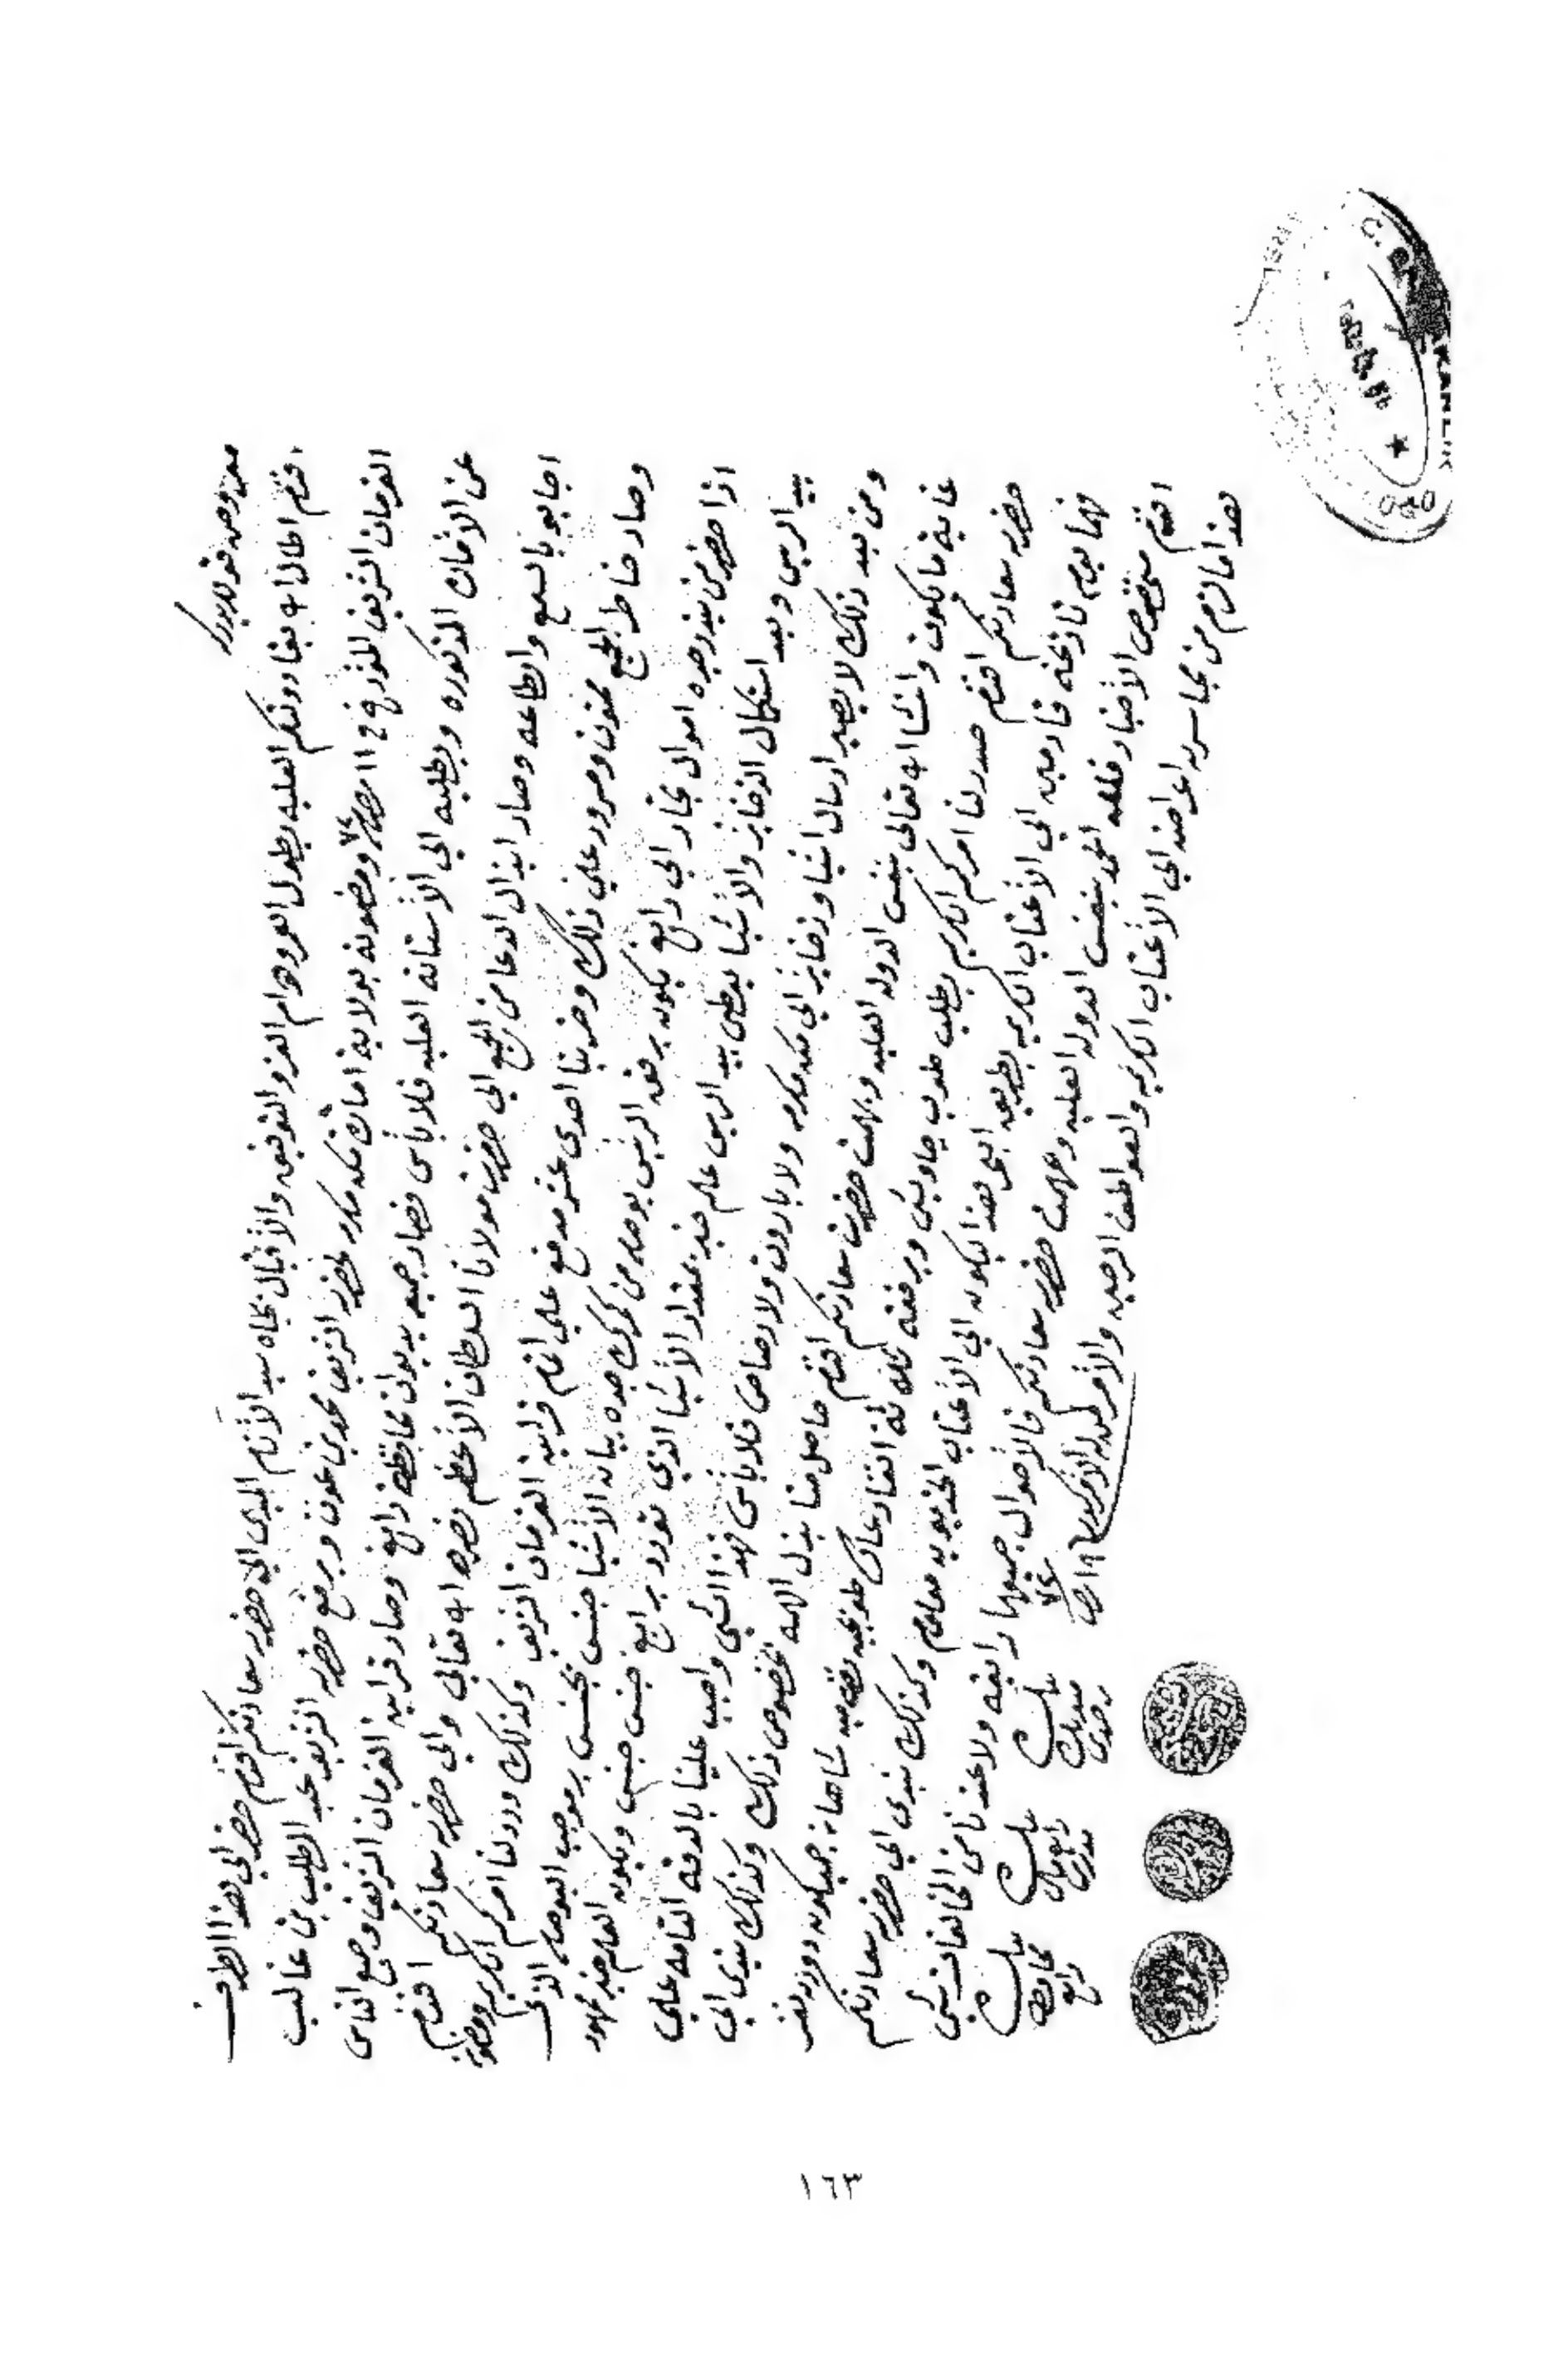 معروض قوللريدر
افندم اطال الله بقا دولتكم العليه بطول العمر ودوام العز والتوفيق والأقبال بجاه سيد الأنام المبدى الي حضرة سعادتكم افندم حضر الي هذا الطرف
الفرمان الشريف المؤرخ في ١١ ومضمونه بولاية امارة مكه مكرمه لحضرة الشريف محمد بن عون ورفع حضرة الشريف عبد المطلب بن غالب
عن الامارة المذكوره وبطلبه الي الأستانه العليه فلا بأس فصار جميعه بديوان محافظة رابغ وصار قراية الفرمان الشريف وجميع الناس
اجابو بالسمع والطاعه وصار ابذال الدعا من الجميع الي حضرت مولانا السلطان الأعظم نصره الله تعالي والي حضرة سعادتكم افندم
وصار خاطر الجميع ممنون ومسرور علي ذلك وضربنا احدى عشر مدفع علي اتمام قراية الفرمان الشريف وكذلك ورد لنا امركم الكريم ومضمونه
اذا حضر من بندر جده اموال تجار الي رابغ يكون برفق الريس بوصله من كمرك جده بيان الأشيا جنس بجنس بموجب البوصله الذي
بيد الريس وبعد استكمال الذخاير والأشيا يعطي بيد الريس علم خبر بمقدار الأشيا الذي تورد برابغ جنس جنس ويكون العلم خبر ممهور
ومن بعد ذلك لا يصير ارسال اشيا وذخاير الي مكه مكرمه ولا بارود ولا رصاص فلا بأس فهذا الشي واجب علينا بالدقه التامه علي
غاية ما يكون وانشا الله تعالي بنفس الدوله العليه وبهمت حضرت سعادتكم افندم حاصل منا بذل الهمه بخصوص ذلك وكذلك نبدي الي
حضرة سعادتكم افندم صدر لنا امركم الكريم بطلب طوب جاويش وبرفقه ثلاثة انفار عساكر طوبجيه شاهانه
فهما يوم تاريخه قادمين الي الأعتاب الكريمه بطريق البحر هذا ليكون الي الأعتاب الخديويه معلوم وكذلك نبدي الي حضرة سعادتكم
افندم من خصوص الأخبار فلله الحمد بنفس الدوله العليه وهمت حضرة سعادتكم فالأحوال جميعها رايقه ولا عند ناس المخالفات شي
هذا ما لزم من تجاسرنا اعراضه الي الأعتاب الكريمه والعواطف الرحيمه والأمر لمن له الأمر
بنده
محافظ
رابغ
بنده
بنده
١٦٣